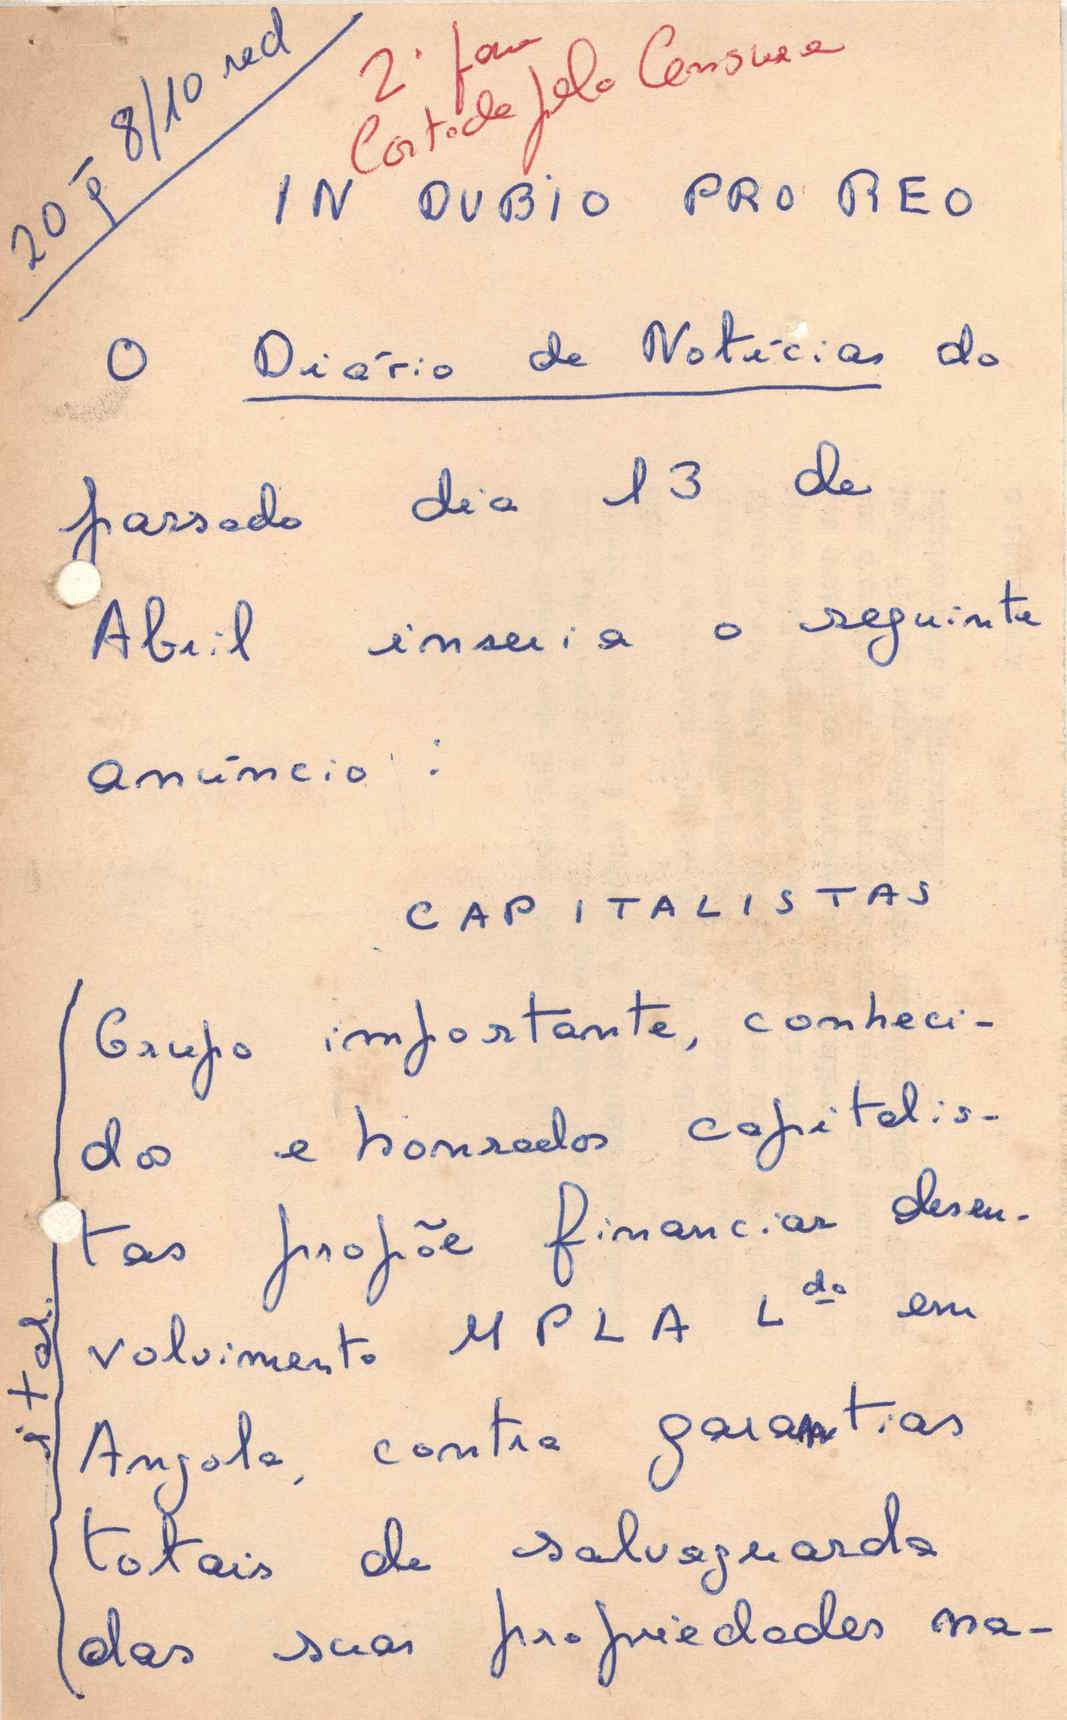 20 p 8/10 red
2ª
Cortada pela Censura
IN DUBIO PRO REO
O Diário de Notícias do
passado dia 13 de
Abril inseria o seguinte
anúncio:
CAPITALISTAS
Grupo importante, conheci-
dos e honrados capitalis-
tas propõe financiar desen-
volvimento MPLA Lda em
Angola, contra garantias
totais de salvaguarda
das suas propriedades na-
ital.